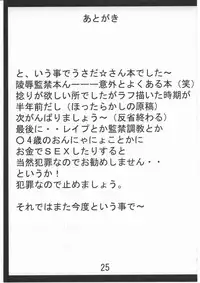 あとがき
と、いう事でうさだ☆さん本でした~
陵辱監禁本ん――意外とよくある本（笑）
捻りが欲しい所でしたがラフ描いた時期が
半年前だし（ほったらかしの原稿）
次がんばりましょう~（反省終わる）
最後に・・レイプとか監禁調教とか
〇4歳のおんにゃにょことかに
お金でSEXしたりすると
当然犯罪なのでお勧めしません・・
というか！
犯罪なので止めましょう。
それではまた今度という事で~
25